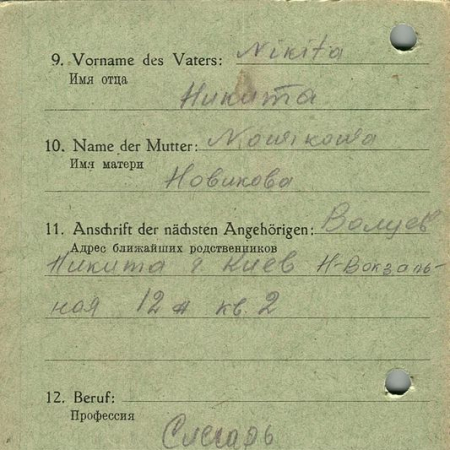 9. Vorname des Vaters: Nikita
Имя отца
Никита
10. Name der Mutter:
Имя матери
Новикова
11. Anschrift der nächsten Angehörigen: Волуев
Адрес ближайших родственников
Никита г. Киев Н-Вокзаль-
ная 12 кв. 2
12. Beruf:
Профессия
Слесарь